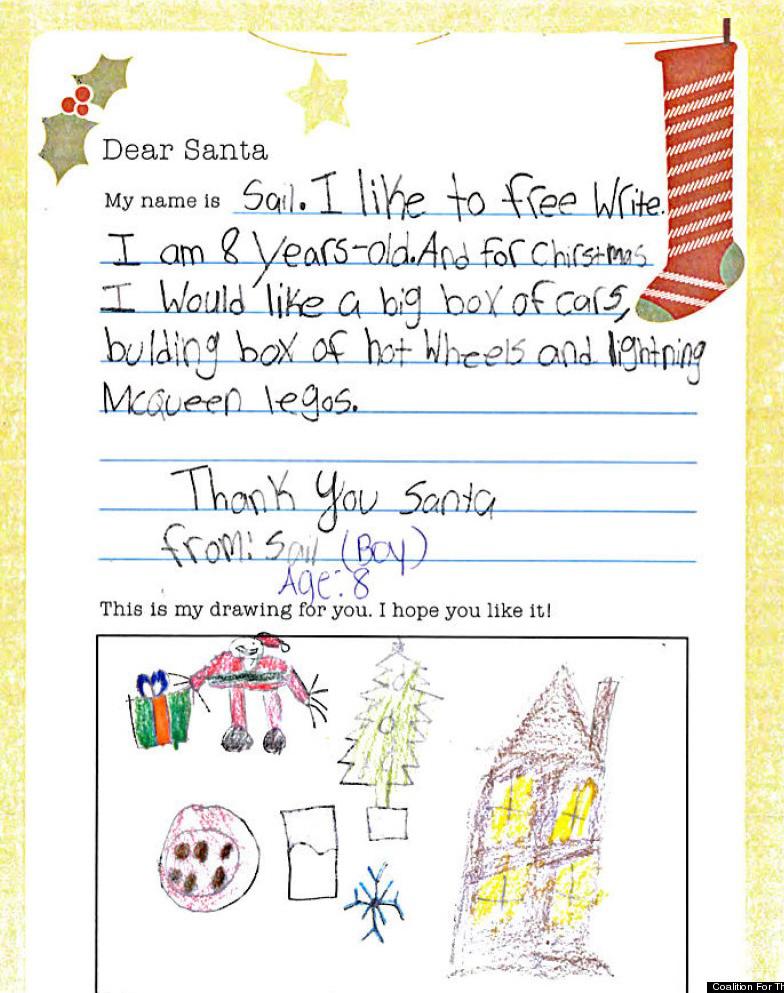 Dear Santa
My name is Sail. I like to free Write.
I am 8 years-old. And for Chirstmas
I Would like a big box of cars,
bulding box of hot Wheels and lightning
Mcqueen legos.
Thank You Santa
from: Sail (Boy)
Age: 8
This is my drawing for you. I hope you like it!
Coalition For Th